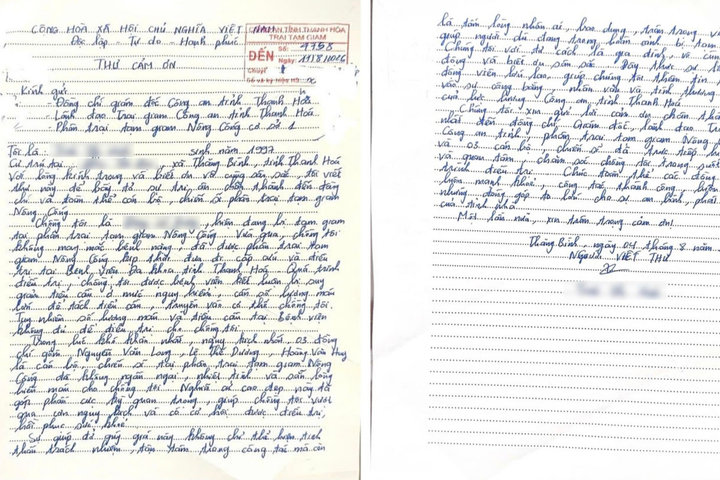 CỘNG HOÀ XÃ HỘI CHỦ NGHĨA VIỆT NAM
Độc lập - Tự do - Hạnh phúc
CÔNG AN TỈNH THANH HÓA
TRẠI TẠM GIAM
ĐẾN
Số:
Ngày:
Chuyển
Số và ký hiệu HS:
THƯ CẢM ƠN
Kính gửi:
- Đồng chí giám đốc Công an tỉnh Thanh Hoá
- Lãnh đạo Trại giam Công an tỉnh Thanh Hoá
- Phân trại tạm giam Nông Cống cơ sở 1
Tôi là: sinh năm 1997
Cư trú tại: xã Thăng Bình, tỉnh Thanh Hoá
Với lòng kính trọng và biết ơn vô cùng sâu sắc, tôi viết
thư này để bày tỏ sự tri ân chân thành đến đồng
chí và toàn thể cán bộ, chiến sĩ phân trại tạm giam
Nông Cống.
Chồng tôi là hiện đang bị tạm giam
tại phân trại tạm giam Nông Cống. Vừa qua, chồng tôi
không may mắc bệnh nặng, đã được phân trại tạm
giam Nông Cống kịp thời đưa đi cấp cứu và điều
trị tại Bệnh viện Đa khoa tỉnh Thanh Hoá. Quá trình
điều trị, chồng tôi được bệnh viện kết luận bị suy
giảm tiểu cầu ở mức nguy hiểm, cần số lượng máu
lớn để tách tiểu cầu, truyền vào cơ thể chồng tôi.
Tuy nhiên số lượng máu và tiểu cầu tại Bệnh viện
không đủ để điều trị cho chồng tôi.
Trong lúc khó khăn nhất, nguy kịch nhất, 03 đồng
chí gồm Nguyễn Văn Long, Lê Thế Dương, Hoàng Văn Huy
là cán bộ, chiến sĩ tại phân trại tạm giam Nông
Cống đã không ngần ngại, nhiệt tình và sẵn lòng
hiến máu cho chồng tôi. Nghĩa cử cao đẹp này đã
góp phần cực kỳ quan trọng, giúp chồng tôi vượt
qua cơn nguy kịch và có cơ hội được điều trị,
hồi phục sức khoẻ.
Sự giúp đỡ quý giá này không chỉ thể hiện tinh
thần trách nhiệm, tận tâm trong công tác mà còn
là tấm lòng nhân ái, bao dung, trân trọng và
giúp người dù đang trong hoàn cảnh bị tạm
Chúng tôi với tư cách là gia đình vô cùng
động và biết ơn sâu sắc. Đây thực sự là
động viên lớn lao, giúp chúng tôi thêm tin
vào sự công bằng, nhân văn và tình thương
của lực lượng Công an tỉnh Thanh Hoá.
Chúng tôi xin gửi lời cảm ơn chân thành
nhất đến đồng chí Giám đốc, lãnh đạo Trại
Công an tỉnh, phân trại tạm giam Nông
và 03 cán bộ, chiến sĩ đã trực tiếp
và quan tâm, chăm sóc chồng tôi trong suốt
trình điều trị. Chúc toàn thể các đồng
luôn mạnh khoẻ, công tác thành công, luôn
những đóng góp to lớn cho sự an bình, phát
của tỉnh nhà.
Một lần nữa, xin trân trọng cảm ơn!
Thăng Bình, ngày 04 tháng 8 năm
NGƯỜI VIẾT THƯ